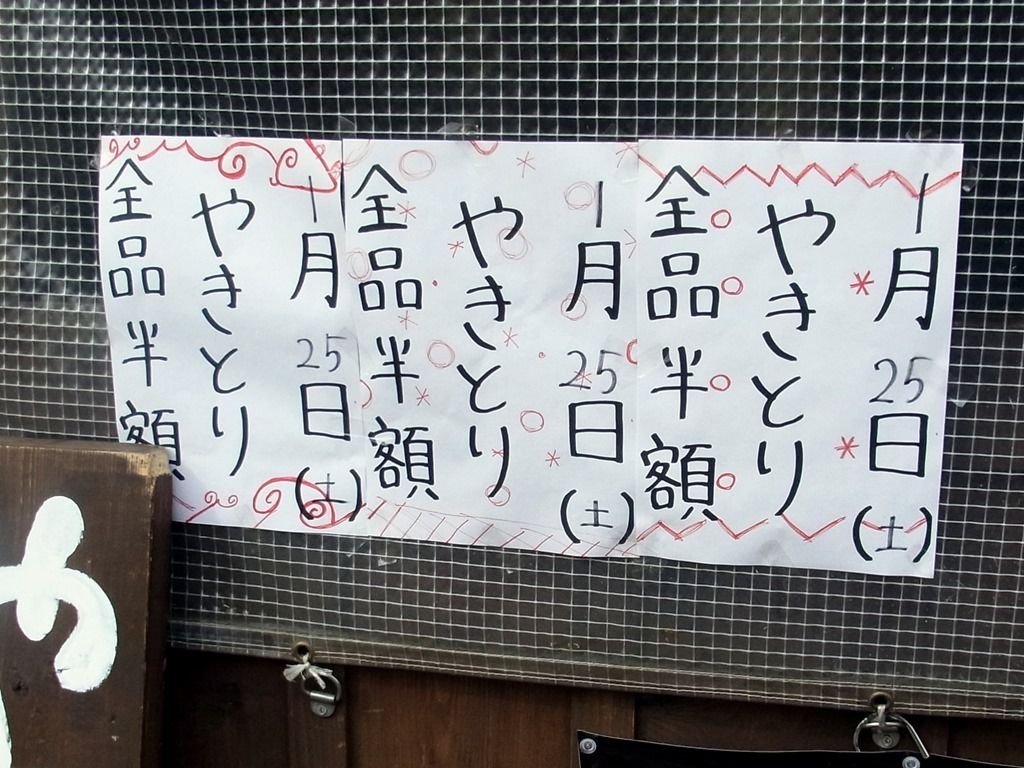 一月25日(土)
やきとり
全品半額
一月25日(土)
やきとり
全品半額
一月25日(土)
やきとり
全品半額